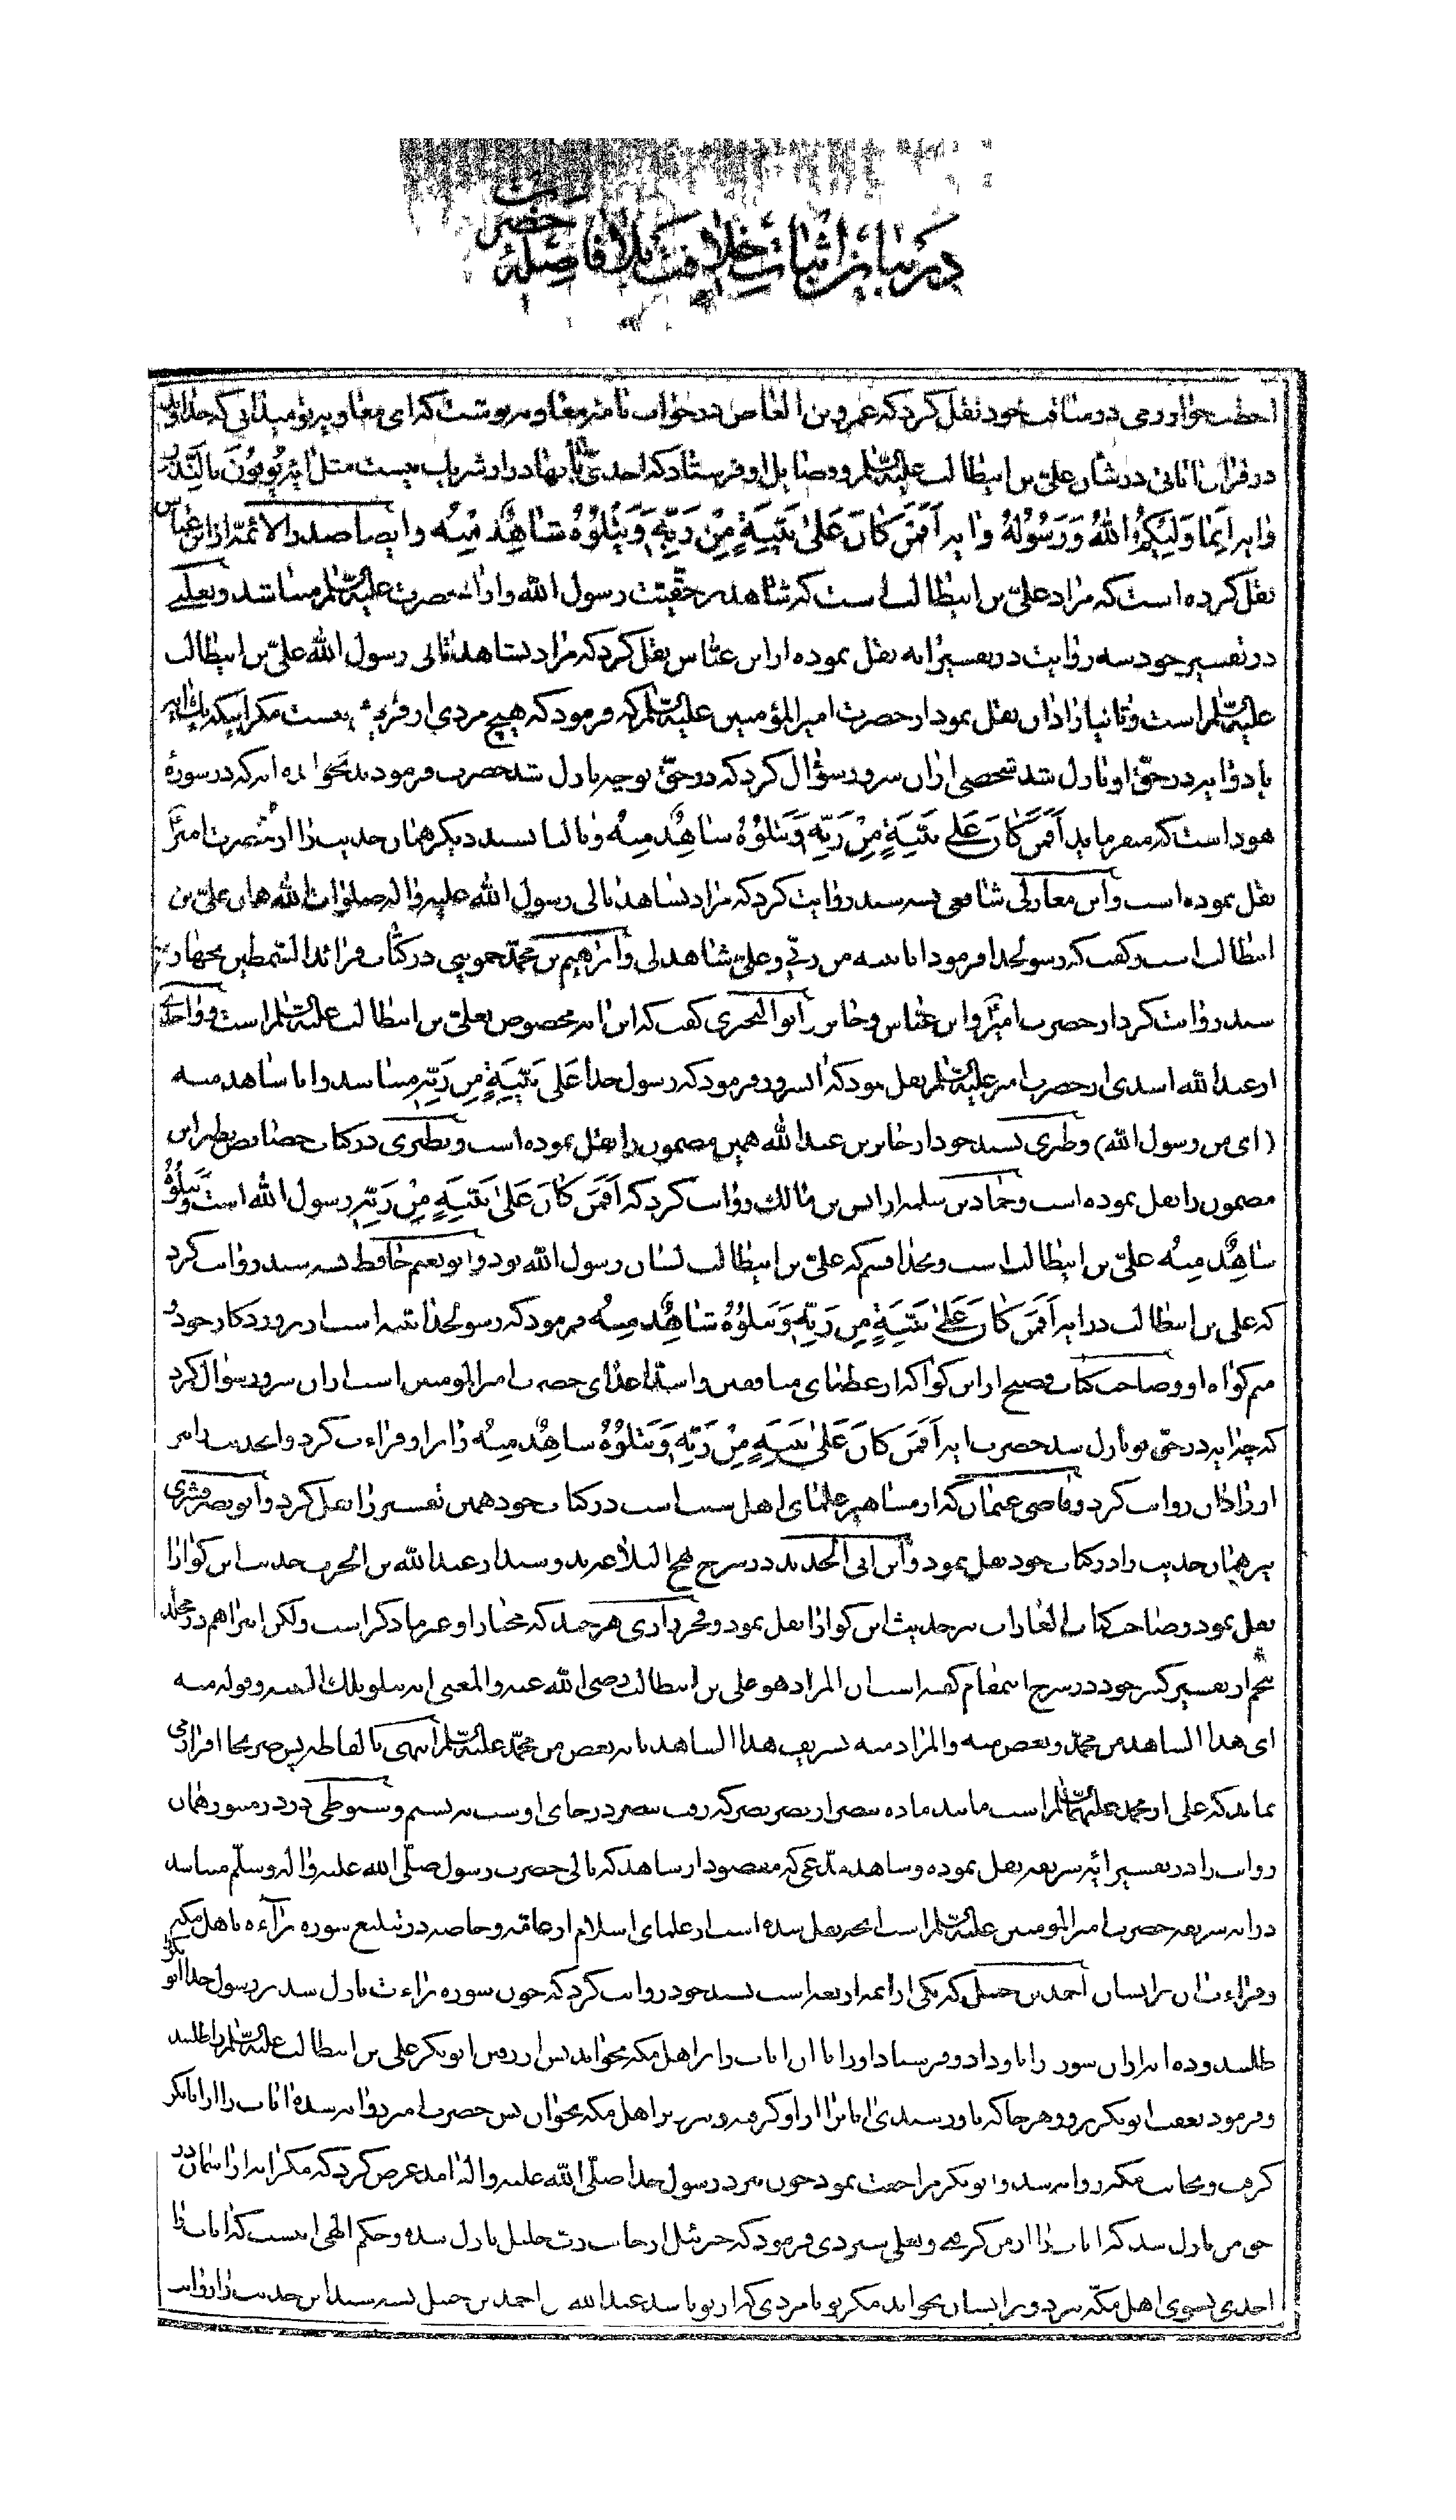 در بیان اثبات خلافت بلا فاصله حضرت
اخطب خوارزمی در مناقب خود نقل کرد که عمرو بن العاص در جواب نامه معاویه نوشت که ای معاویه تو میدانی که خداوند
در قرآن اٰیاتی در شأن علیّ بن ابیطالب علیه السّلام و فضایل او فرستاد که احدی بآنها در او شریک نیست مثل ایه یُوفُونَ بِالنَّذْرِ
و ایه اِنَّما وَلِیُّکُمُ اللهُ وَ رَسُولُهُ و ایه اَفَمَنْ کانَ عَلیٰ بَیِّنَةٍ مِنْ رَبِّهِ وَ یَتْلُوهُ شاهِدٌ مِنْهُ و ایضا صدر الائمّه از ابن عباس
نقل کرده است که مراد علیّ بن ابیطالب است که شاهد بر حقّیت رسول الله و از انحضرت علیه السّلام میباشد و ثعلبی
در تفسیر خود سه روایت در تفسیر ایه نقل نموده از ابن عبّاس نقل کرد که مراد بشاهد تالی رسول الله علیّ بن ابیطالب
علیه السّلام است و ثانیا زاذان نقل نمود از حضرت امیر المؤمنین علیه السّلام که فرمود که هیچ مردی از قریش نیست مکر اینکه یک ایه
یا دو ایه در حقّ او نازل شد شخصی از ان سرور سؤال کرد که در حقّ تو چه نازل شد حضرت فرمودند نخوانده ایه که در سورۀ
هود است که میفرماید اَفَمَنْ کانَ عَلیٰ بَیِّنَةٍ مِنْ رَبِّهِ وَ یَتْلُوهُ شاهِدٌ مِنْهُ و ثالثا بسند دیکر همان حدیث را از حضرت امیر
نقل نموده است و ابن مغازلی شافعی بسه سند روایت کرد که مراد بشاهد تالی رسول الله علیه و اله صلوات الله همان علیّ بن
ابیطالب است و کفت که رسولخدا فرمود انا بینه من ربّی و علیّ شاهد لی و ابرهیم بن محمّد حموینی در کتاب فرائد السّمطین بچهار
سند روایت کرد از حضرت امیر و ابن عبّاس و جابر و ابو البحتری کفت که این ایه مخصوص بعلیّ بن ابیطالب علیه السّلام است و واحدی
از عبد الله اسدی از حضرت امیر علیه السّلام نقل نمود که انسرور فرمود که رسول خدا عَلیٰ بَیِّنَةٍ مِنْ رَبِّهِ میباشد و انا شاهد منه
(ای من رسول الله) و طبری بسند خود از جابر بن عبد الله همین مضمون را نقل نموده است و نطنزی در کتاب خصائص نظیر این
مضمون را نقل نموده است و حمّاد بن سلمه از انس بن مالک روایت کرد که اَفَمَنْ کانَ عَلیٰ بَیِّنَةٍ مِنْ رَبِّهِ رسول الله است وَ یَتْلُوهُ
شاهِدٌ مِنْهُ علیّ بن ابیطالب است و بخدا قسم که علیّ بن ابیطالب لسان رسول الله بود و ابو نعیم حافظ بسه سند روایت کرد
که علی بن ابیطالب در ایه اَفَمَنْ کانَ عَلیٰ بَیِّنَةٍ مِنْ رَبِّهِ وَ یَتْلُوهُ شاهِدٌ مِنْهُ فرمود که رسولخدا بیّنه است از پروردکار خود و
منم کواه او و صاحب کتاب فصیح از ابن کوّا که از عظمای منافقین و اشدّ اعدای حضرت امیر المؤمنین است از ان سرور سؤال کرد
که چه ایه در حقّ تو نازل شد حضرت ایه اَفَمَنْ کانَ عَلیٰ بَیِّنَةٍ مِنْ رَبِّهِ وَ یَتْلُوهُ شاهِدٌ مِنْهُ را بر او قراءت کرد و اینحدیث را نیز
از زاذان روایت کرد و قاضی عثمان که از مشاهیر علمای اهل سنّت است در کتاب خود همین تفسیر را نقل کرد و ابو نصر قشیری
نیز همان حدیث را در کتاب خود نقل نمود و ابن ابی الحدید در شرح نهج البلاغه بدو سند از عبد الله بن الحرث حدیث ابن کوّا را
نقل نمود و صاحب کتاب الغارات نیز حدیث ابن کوّا را نقل نمود و فخر رازی هر چند که مختار او غیر ما ذکر است ولکن این را هم در مجلد
پنجم از تفسیر کبیر خود در شرح این مقام کفته است ان المراد هو علی بن ابیطالب رضی الله عنه و المعنی انه یتلو تلک البینه و قوله منه
ای هذا الشاهد من محمّد و بعض منه و المراد منه تشریف هذا الشاهد بانه بعض من محمّد علیه السّلام انتهی بالفاظه پس صریحا اقرار می
نماید که علی از محمد علیهما السّلام است
روایت را در تفسیر ایه شریفه نقل نموده و شاهد مدّعی که مقصود از شاهد که تالی حضرت رسول صلّی الله علیه و اله و سلّم میباشد
در ایه شریفه حضرت امیر المؤمنین علیه السّلام است انچه نقل شده است از علمای اسلام از عامّه و خاصه در تبلیغ سوره براءة باهل مکه
و قراءت ان بر ایشان احمد بن حنبل که یکی از ائمه اربعه است بسند خود روایت کرد که چون سوره براءت نازل شد بر رسول خدا ابو بکر
طلبید و ده ایه از ان سوره را باو داد و فرستاد او را تا ان ایات را بر اهل مکه بخواند پس از رفتن ابو بکر علی بن ابیطالب علیه السّلام را طلبید
و فرمود بعقب ابو بکر برو و هر جا که باو رسیدی ایات را از او کرفته و بر اهل مکه بخوان پس حضرت امیر روانه شده ایات را از ابابکر
کرفت و بجانب مکه روانه شد و ابو بکر مراجعت نمود چون نزد رسول خدا صلّی الله علیه و اله امد عرض کرد که مکر ایه از اسمان در
حق من نازل شد که ایات را از من کرفتی و بعلی سپردی فرمود که جبرئیل از جانب ربّ جلیل نازل شده و حکم الهی اینست که ایات را
احدی بسوی اهل مکّه نبرد و بر ایشان نخواند مکر تو یا مردی که از تو باشد عبد الله بن احمد بن حنبل بسه سند این حدیث را روایت